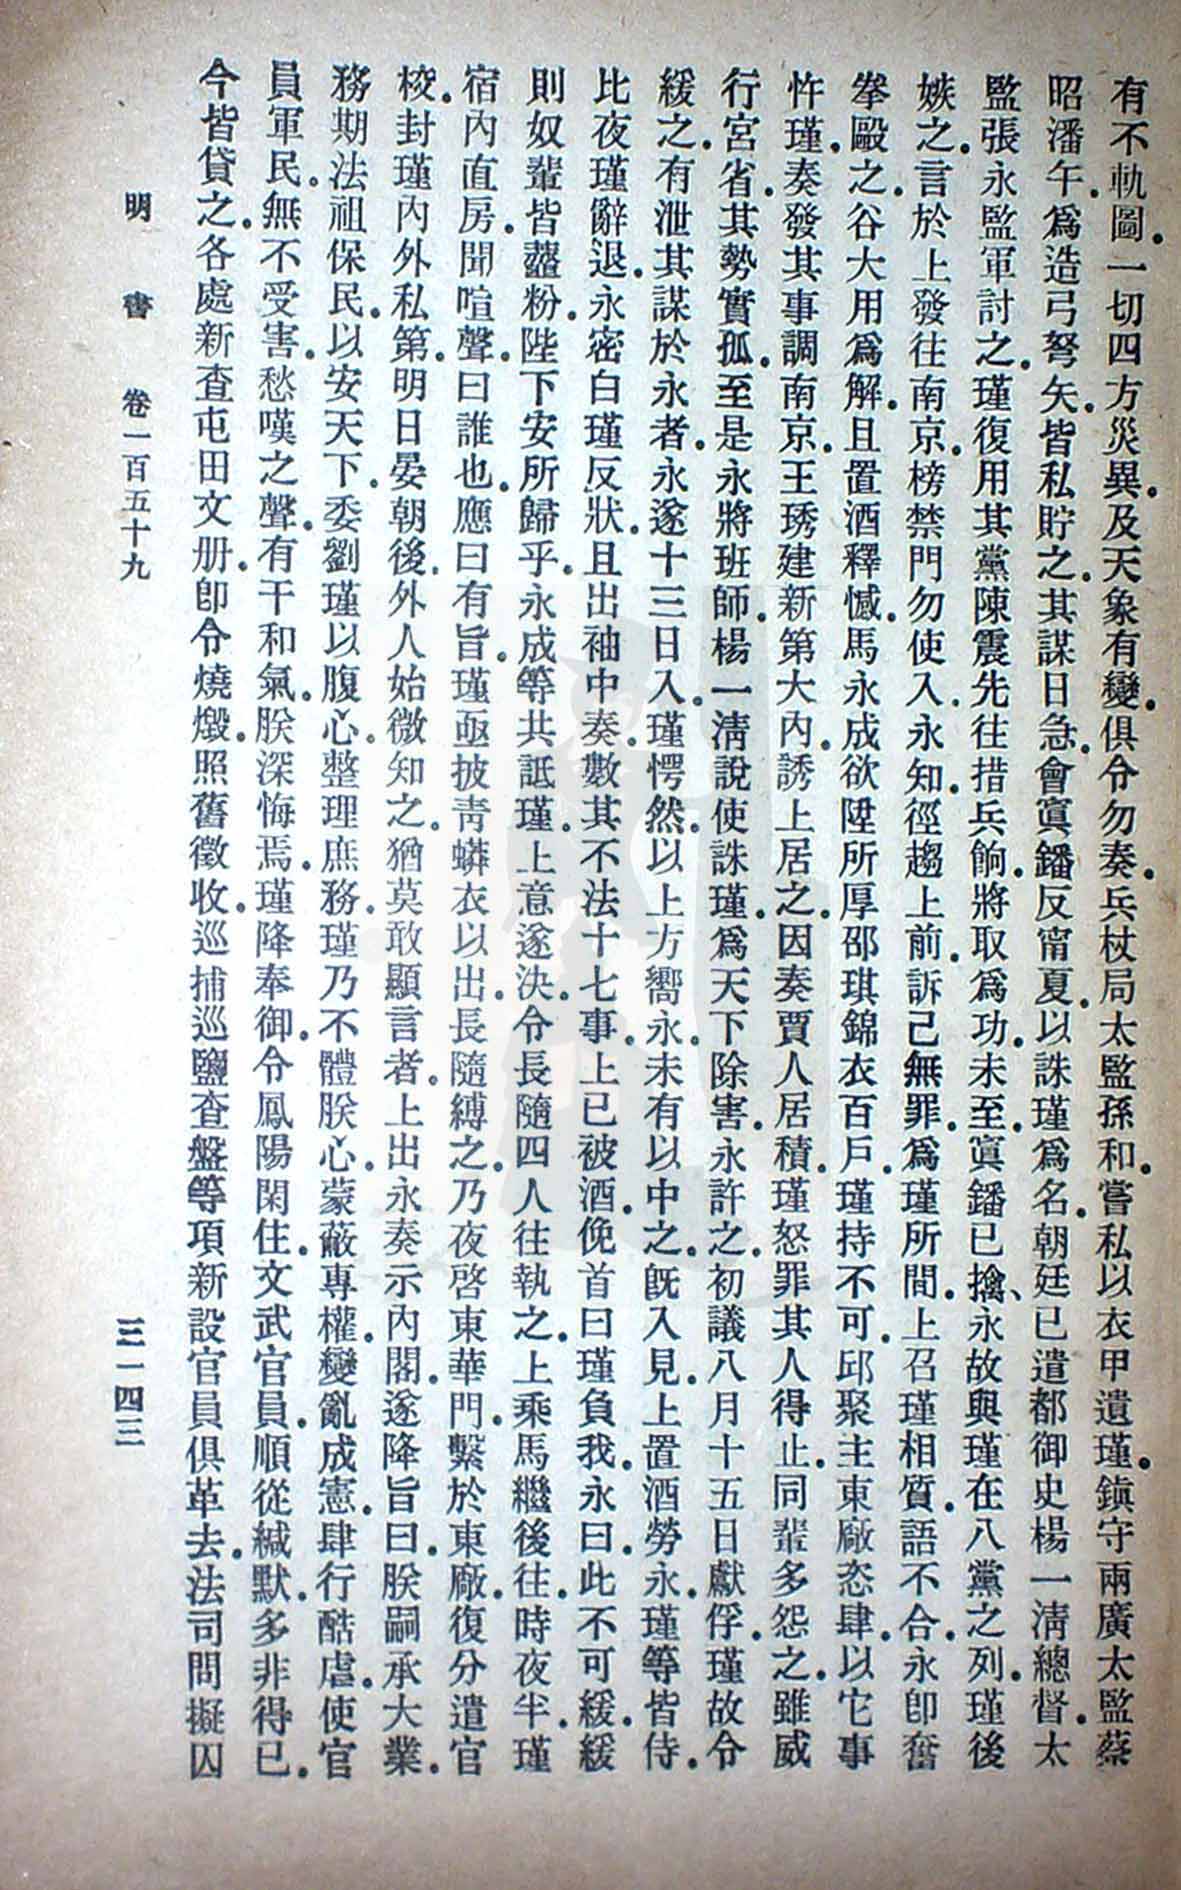 有不軌圖．一切四方災異．及天象有變．俱令勿奏．兵杖局太監孫和．嘗私以衣甲遺瑾．鎭守兩廣太監蔡
昭潘午．爲造弓弩矢．皆私貯之．其謀日急．會寘鐇反甯夏．以誅瑾爲名．朝廷已遣都御史楊一淸總督．太
監張永監軍討之．瑾復用其黨陳震先往措兵餉．將取爲功．未至．寘鐇已擒、永故與瑾在八黨之列．瑾後
嫉之．言於上發往南京．榜禁門勿使入．永知．徑趨上前．訴己無罪．爲瑾所間．上召瑾相質．語不合．永卽奮
拳毆之．谷大用爲解．且置酒釋憾．馬永成欲陞所厚邵琪錦衣百戶．瑾持不可．邱聚主東廠恣肆．以它事
忤瑾．奏發其事調南京．王琇建新第大內．誘上居之．因奏賈人居積．瑾怒罪其人得止．同輩多怨之．雖威
行宮省．其勢實孤．至是永將班師．楊一淸說使誅瑾．爲天下除害．永許之．初議八月十五日獻俘．瑾故令
緩之．有泄其謀於永者．永遂十三日入．瑾愕然．以上方嚮永．未有以中之．旣入見．上置酒勞永．瑾等皆侍．
比夜瑾辭退．永密白瑾反狀．且出袖中奏．數其不法十七事．上已被酒．俛首曰．瑾負我．永曰．此不可緩．緩
則奴輩皆虀粉．陛下安所歸乎．永成等共詆瑾．上意遂決．令長隨四人往執之．上乘馬繼後往．時夜半．瑾
宿內直房．聞喧聲．曰誰也．應曰有旨．瑾亟披靑蟒衣以出．長隨縛之．乃夜啓東華門．繫於東廠．復分遣官
校．封瑾內外私第．明日晏朝後．外人始微知之．猶莫敢顯言者．上出永奏示內閣．遂降旨曰．朕嗣承大業．
務期法祖保民．以安天下．委劉瑾以腹心．整理庶務．瑾乃不體朕心．蒙蔽專權．變亂成憲．肆行酷虐．使官
員軍民．無不受害．愁嘆之聲．有干和氣．朕深悔焉．瑾降奉御．令鳳陽閑住．文武官員．順從緘默．多非得已．
今皆貸之．各處新査屯田文册．卽令燒燬．照舊徵收．巡捕巡鹽査盤等項新設官員俱革去．法司問擬囚
明　書　卷一百五十九　三一四三